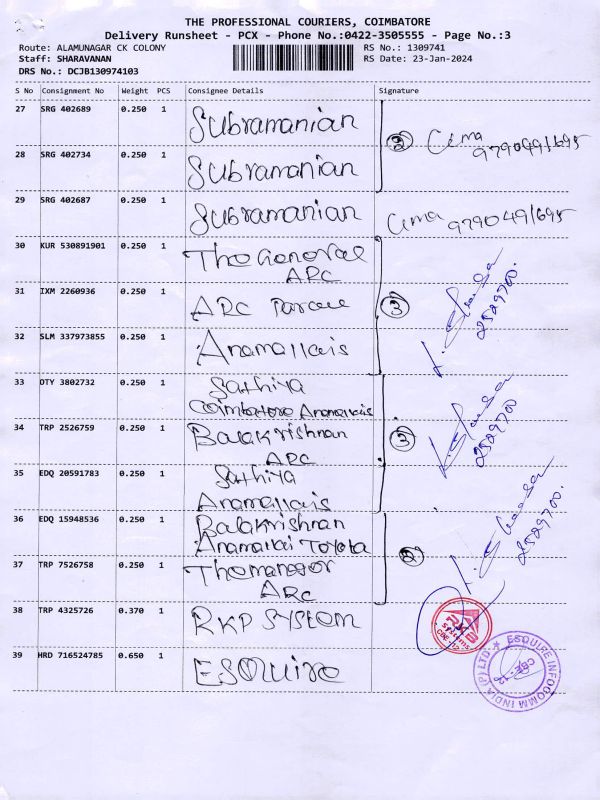 THE PROFESSIONAL COURIERS, COIMBATORE
Delivery Runsheet - PCX - Phone No.:0422-3505555 - Page No.:3
Route: ALAMUNAGAR CK COLONY
RS No.: 1309741
Staff: SHARAVANAN
RS Date: 23-Jan-2024
DRS No.: DCJB130974103
S No Consignment No Weight PCS Consignee Details Signature
27 SRG 402689 0.250 1 Subramanian
2 Uma 9790491695
28 SRG 402734 0.250 1 Subramanian
29 SRG 402687 0.250 1 Subramanian Uma 9790491695
30 KUR 530891901 0.250 1 The General
ARC
31 IXM 2260936 0.250 1 ARC Parcel 3
2529700.
32 SLM 337973855 0.250 1 Anamallais
33 OTY 3802732 0.250 1 Sathiya
Coimbatore Anamallais
34 TRP 2526759 0.250 1 Balakrishnan 3
2529700
ARC
35 EDQ 20591783 0.250 1 Sathiya
Anamallais
36 EDQ 15948536 0.250 1 Balakrishnan
Anamallai Toyota 2
2529700.
37 TRP 7526758 0.250 1 The manager
ARC
38 TRP 4325726 0.370 1 RKP SYSTEM
39 HRD 716524785 0.650 1 ESQUIRE
ESQUIRE INFOCOMM INDIA (P) LTD. ★
CBE-12